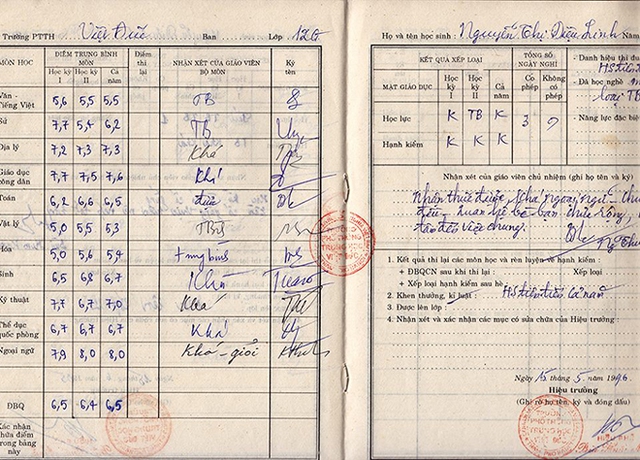 Trường PTTH Việt Đức Ban Lớp 12G
MÔN HỌC
ĐIỂM TRUNG BÌNH MÔN
Học kỳ I
Học kỳ II
Cả năm
Điểm thi lại
NHẬN XÉT CỦA GIÁO VIÊN BỘ MÔN
Ký tên
Văn - Tiếng Việt 5,6 5,5 5,5 TB
Sử 7,7 5,4 6,2 TB
Địa lý 7,2 7,3 7,3 Khá
Giáo dục công dân 7,7 7,5 7,6 Khá
Toán 6,2 6,6 6,5 được
Vật lý 5,0 5,5 5,3
Hóa 5,0 5,6 5,4 trung bình
Sinh 6,5 6,8 6,7 Khá
Kỹ thuật 7,7 6,7 7,0 Khá
Thể dục quốc phòng 6,7 6,7 6,7 Khá
Ngoại ngữ 7,9 8,0 8,0 Khá - giỏi
ĐBQ 6,5 6,4 6,5
Xác nhận
chữa điểm
trong bảng
này
Họ và tên học sinh : Nguyễn Thị Diệu Linh Năm
KẾT QUẢ XẾP LOẠI
TỔNG SỐ NGÀY NGHỈ
MẶT GIÁO DỤC
Học kỳ I
Học kỳ II
Cả năm
Có phép
Không có phép
Học lực K TB K 3
Hạnh kiểm K K K
- Danh hiệu thi đu
HS tiên
- Đã học nghề
loại TB
- Năng lực đặc biệ
Nhận xét của giáo viên chủ nhiệm (ghi họ và ký tên)
Nhận thức được, khá ngoại ngữ -
đến việc chung.
1. Kết quả thi lại các môn học và rèn luyện về hạnh kiểm :
+ ĐBQCN sau khi thi lại : Xếp loại
+ Xếp loại hạnh kiểm sau hè
2. Khen thưởng, kỉ luật : HS tiên tiến cả năm
3. Được lên lớp :
4. Nhận xét và xác nhận các mục có sửa chữa của Hiệu trưởng :
Ngày 15 tháng 5 năm 1996
Hiệu trưởng
(Ghi rõ họ tên, ký và đóng dấu)